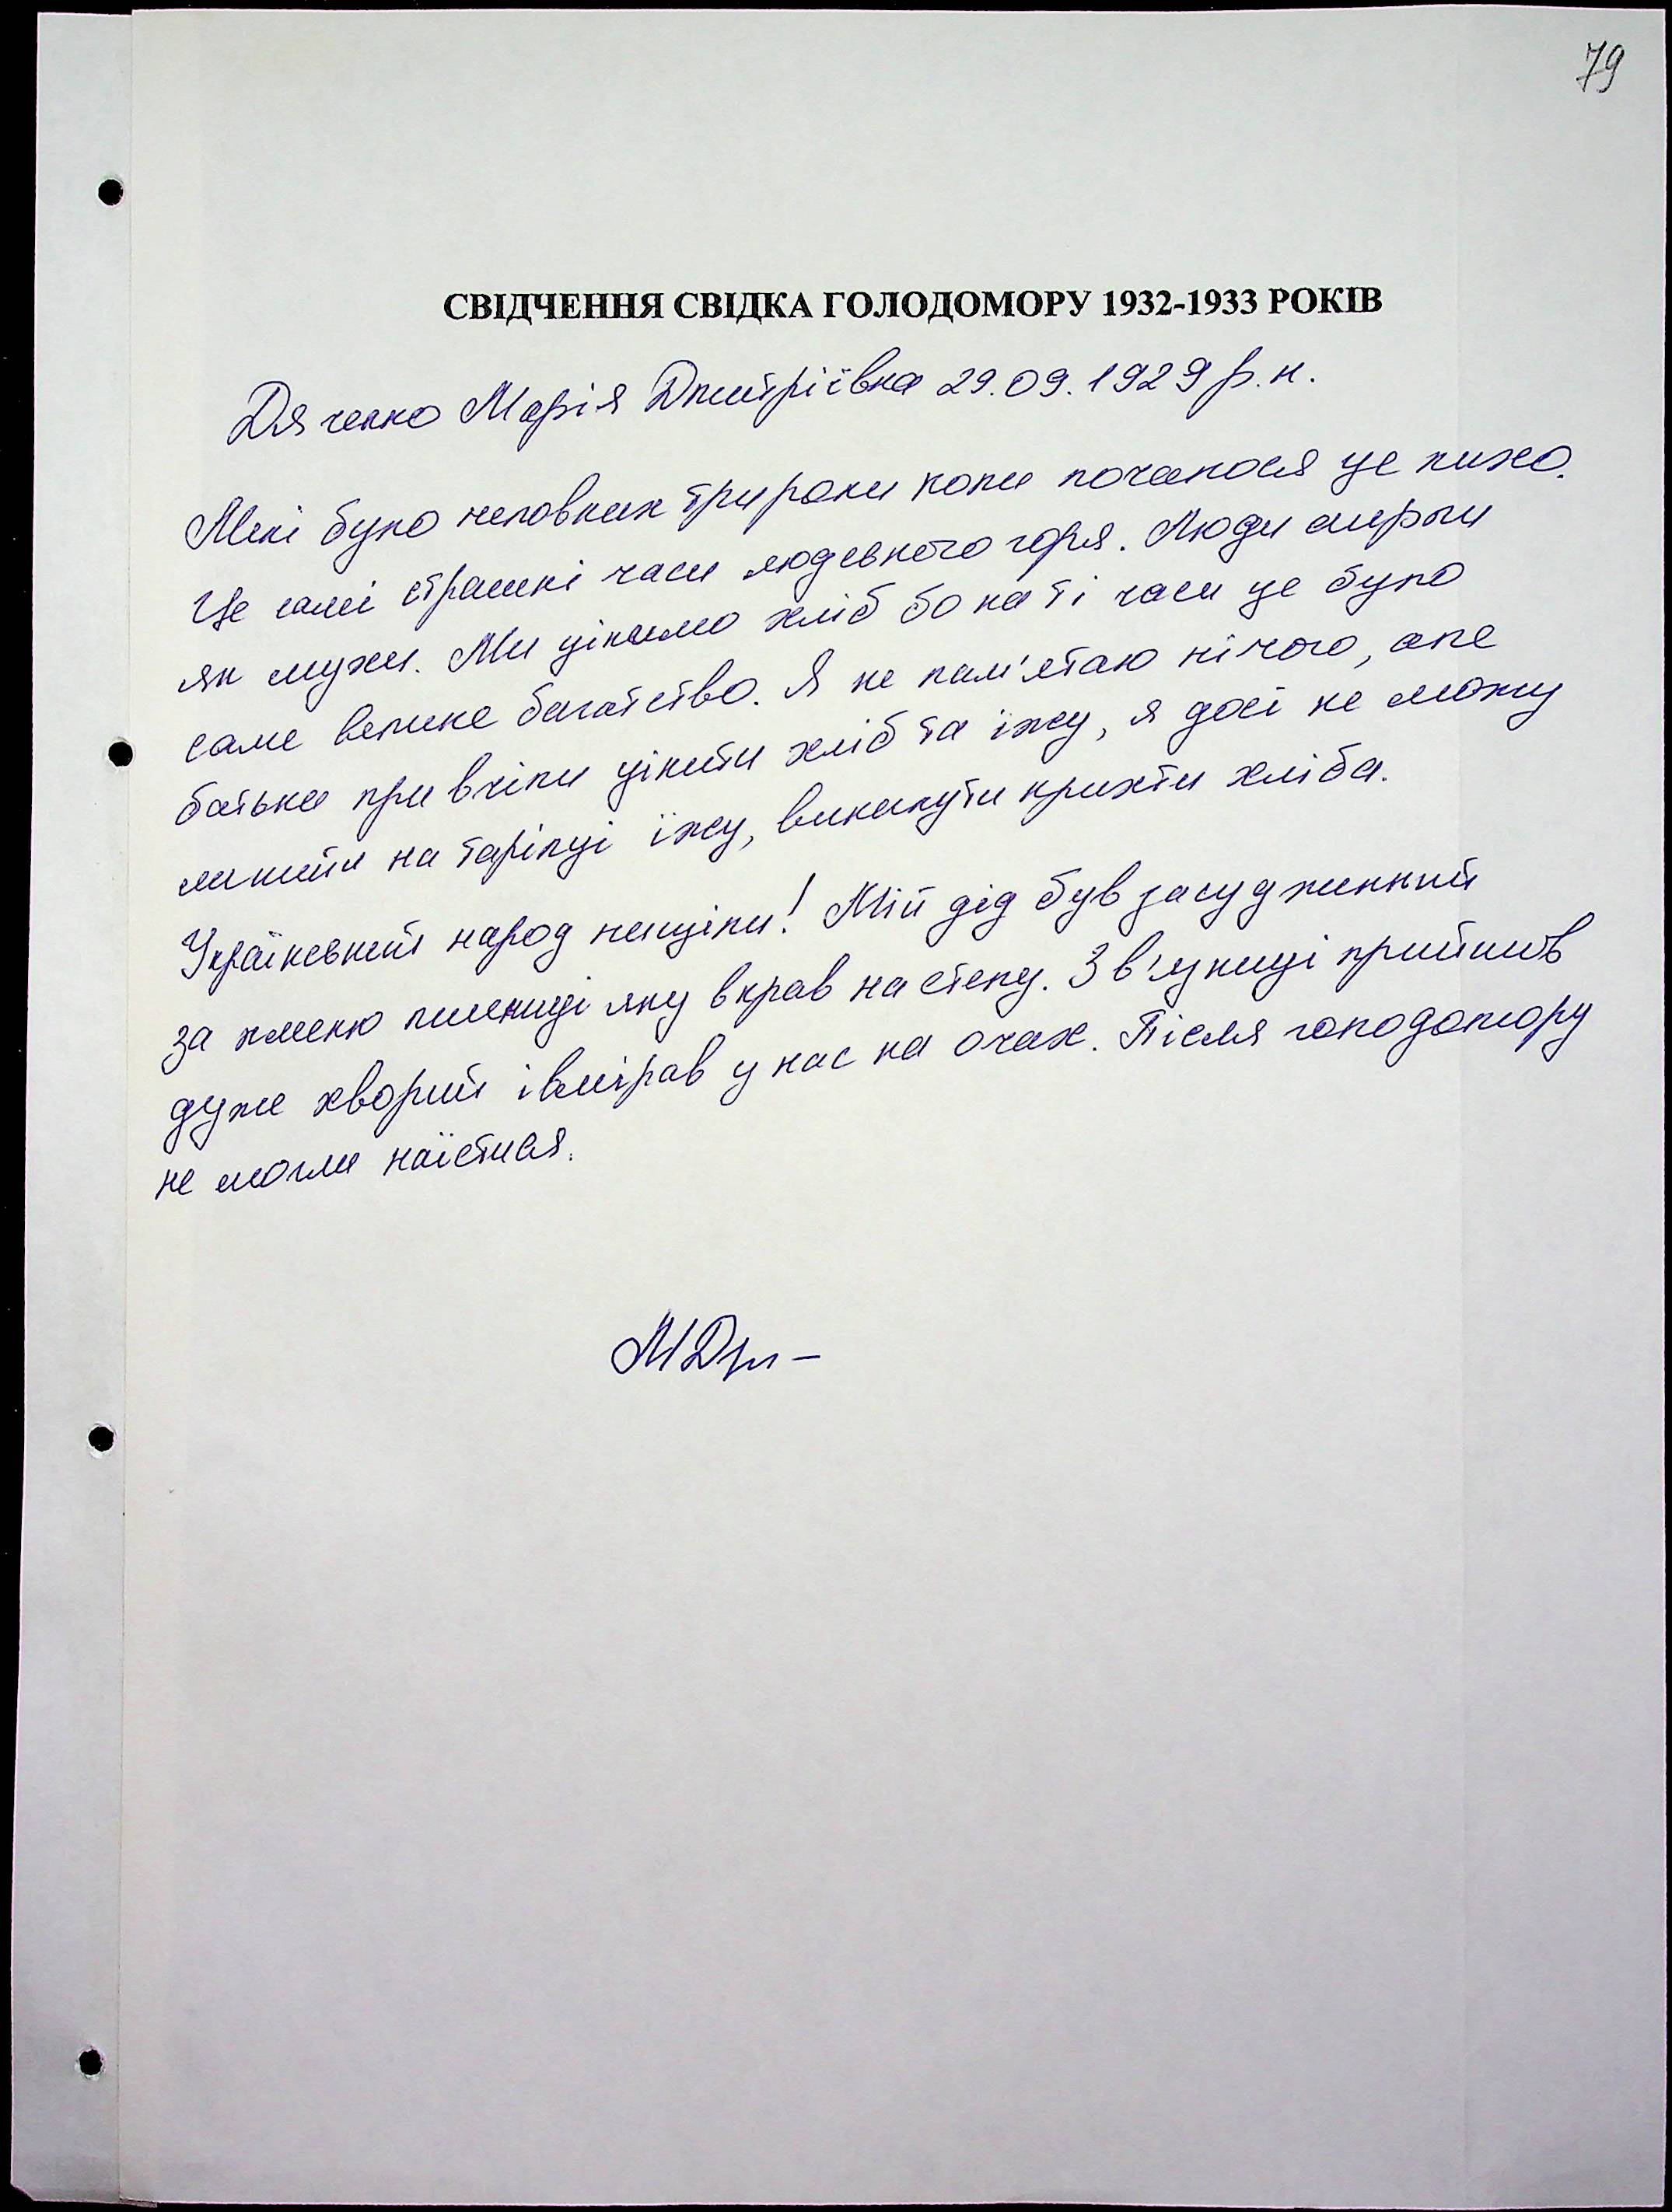 79
СВІДЧЕННЯ СВІДКА ГОЛОДОМОРУ 1932-1933 РОКІВ
Дяченко Марія Дмитріївна 29.09.1929 р.н.
Мені було неповних три роки коли почалося це лихо.
Це самі страшні часи людського горя. Люди мерли
як мухи. Ми цінимо хліб бо на ті часи це було
саме велике багатство. Я не пам'ятаю нічого, але
батьки привчили цінити хліб та їжу, я досі не можу
лишити на тарілці їжу, викинути крихти хліба.
Український народ нищили! Мій дід був засудженний
за жменю пшениці яку вкрав на степу. З в'язниці прийшов
дуже хворий і вмірав у нас на очах. Після голодомору
не могли наїстися.